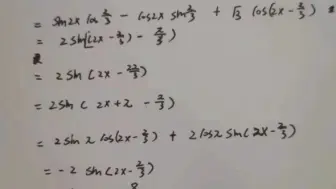 = sin2x cos 2/3 − cos2x sin 2/3 + √3 cos(2x − 2/3)
= 2 sin[(2x − 2/3) − 2/3)
= 2 sin (2x − 22/3)
= 2sin ( 2x + x − 2/3)
= 2 sin x cos(2x − 2/3) + 2 cos x sin(2x − 2/3)
= −2 sin (2x − 2/3)